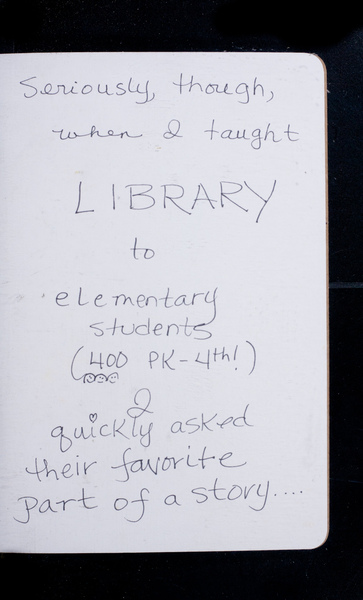 Seriously, though,
when I taught
LIBRARY
to
elementary
students
(400 PK-4th!)
I
quickly asked
their favorite
part of a story....